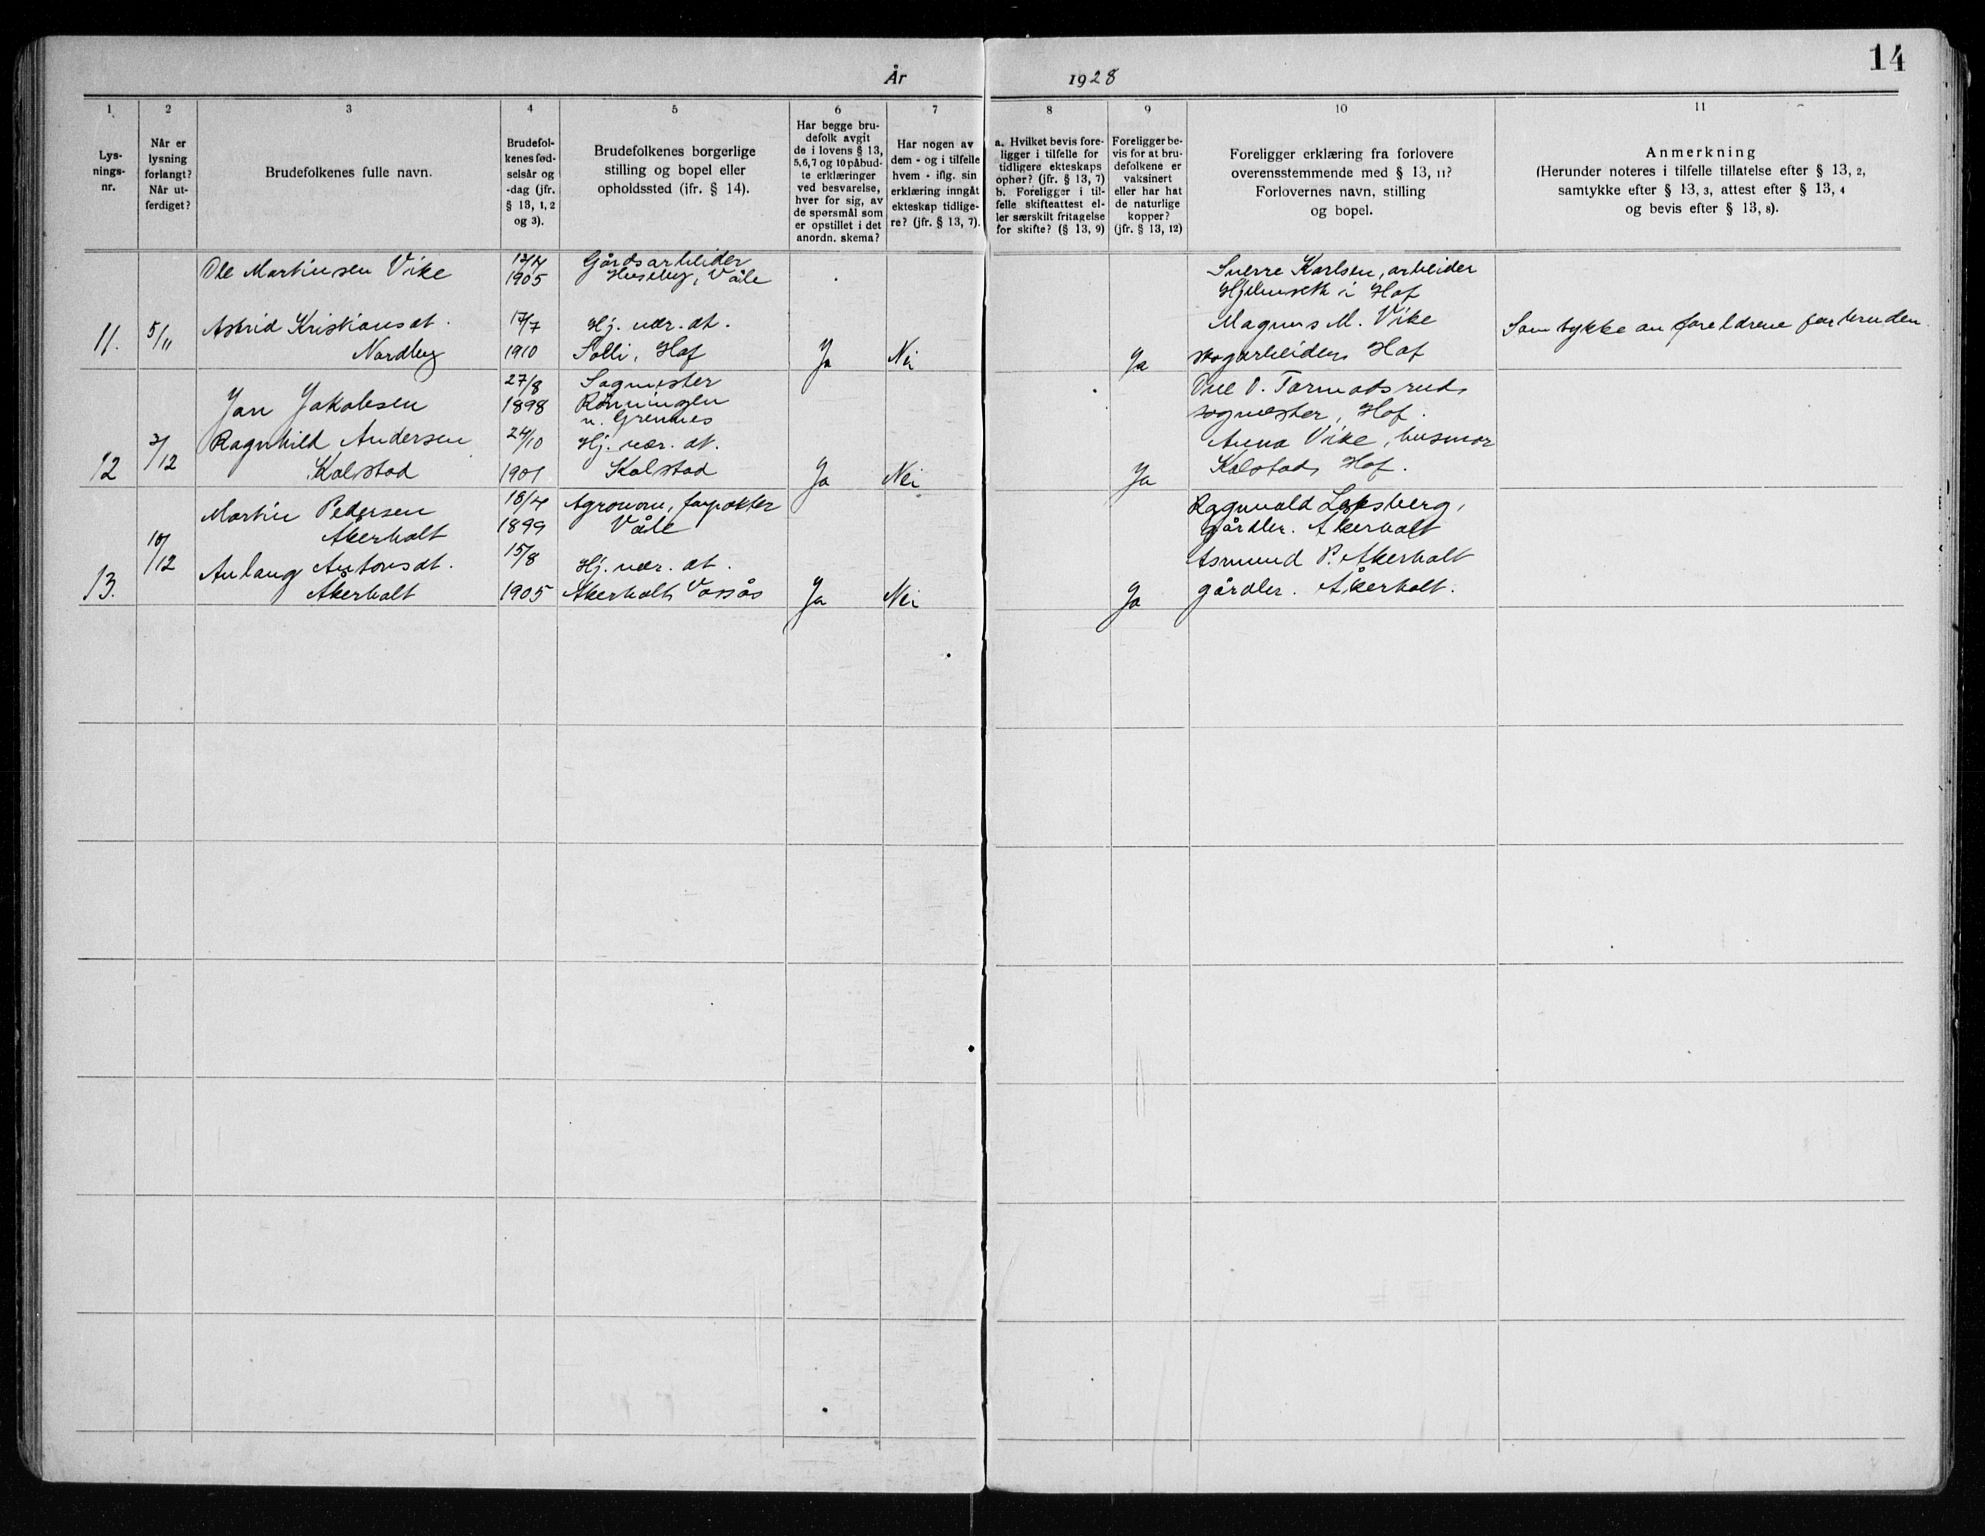 14
År 1928
1 2 3 4 5 6 7 8 9 10 11
Lys-
nings-
nr.
Når er
lysning
forlangt?
Når ut-
ferdiget?
Brudefolkenes fulle navn.
Brudefol-
kenes fød-
selsår og
-dag (jfr.
§ 13, 1, 2
og 3).
Brudefolkenes borgerlige
stilling og bopel eller
opholdssted (jfr. § 14).
Har begge bru-
defolk avgit
de i lovens § 13,
5, 6, 7 og 10 påbud-
te erklæringer
ved besvarelse,
hver for sig, av
de spørsmål som
er opstillet i det
anordn. skema?
Har nogen av
dem - og i tilfelle
hvem - iflg. sin
erklæring inngåt
ekteskap tidlige-
re? (jfr. § 13, 7).
a. Hvilket bevis fore-
ligger i tilfelle for
tidligere ekteskaps
ophør? (jfr. § 13, 7)
b. Foreligger i til-
felle skifteattest el-
ler særskilt fritagelse
for skifte? (§ 13, 9)
Foreligger be-
vis for at bru-
defolkene er
vaksinert
eller har hat
de naturlige
kopper?
(jfr. § 13, 12)
Foreligger erklæring fra forlovere
overensstemmende med § 13, 11?
Forlovernes navn, stilling
og bopel.
Anmerkning
(Herunder noteres i tilfelle tillatelse efter § 13, 2,
samtykke efter § 13, 3, attest efter § 13, 4
og bevis efter § 13, 8).
11. 5/11
Ole Martinsen Vike
Astrid Kristiansdt.
Nordby
1905
17/7
1910
Gårdsarbeider
Huseby, Våle
Hj. vær. dt.
Solli, Hof
Ja Nei Ja
Sverre Karlsen, arbeider
i Hof
Magnus M. Vike
skogarbeider, Hof
Samtykke av foreldrene for bruden.
12 3/12
Jan Jakobsen
Ragnhild Andersen
Kolstad
27/8
1898
24/10
1901
Sagmester
Rønningen
n. Grennes
Hj. vær. dt.
Kolstad
Ja Nei Ja
O. Tormodsrud,
sagmester, Hof.
Anna Vike, husmor
Kolstad, Hof.
13. 10/12
Martin Pedersen
Åkerholt
Aslaug Antonsdt.
Åkerholt
18/4
1899
15/8
1905
Agronom, forpakter
Våle
Hj. vær. dt.
Åkerholt, Vassås
Ja Nei Ja
Ragnvald
gårdbr. Åkerholt
Asmund P. Åkerholt
gårdbr. Åkerholt.